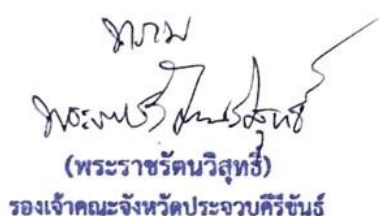 ทราบ
พระราชรัตนวิสุทธิ์
(พระราชรัตนวิสุทธิ์)
รองเจ้าคณะจังหวัดประจวบคีรีขันธ์